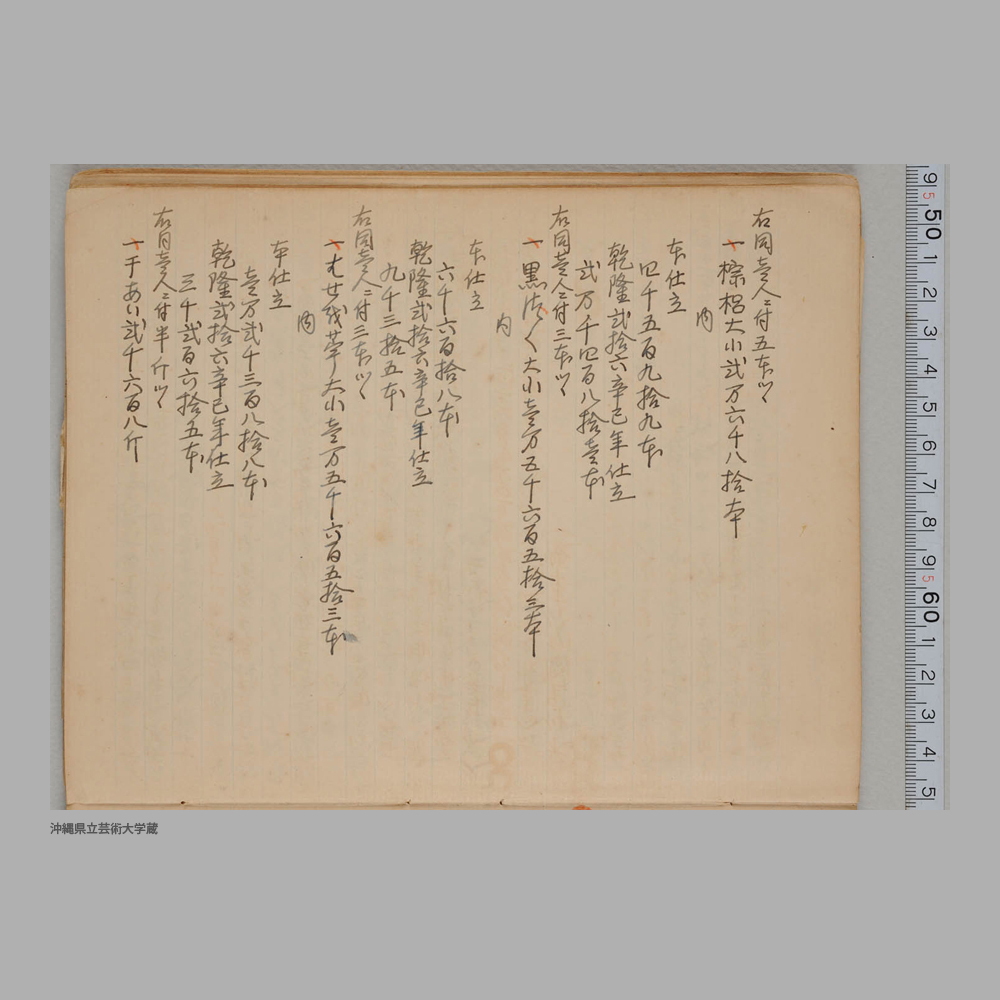 右同壱人ニ付五本ツヽ
一棕梠大小弐万六千八拾本
内
本仕立
四千五百九拾九本
乾隆弐拾六辛巳年仕立
弐万千四百八拾壱本
右同壱人ニ付三本ツヽ
一黒つく大小壱万五千六百五拾三本
内
本仕立
六千六百拾八本
乾隆弐拾六辛巳年仕立
九千三拾五本
右同壱人ニ付三本ツヽ
一 大小壱万五千六百五拾三本
内
本仕立
壱万弐千三百八拾八本
乾隆弐拾六辛巳年仕立
三千弐百六拾五本
右同壱人ニ付半斤ツヽ
一干あい弐千六百八斤
9 5 50 1 2 3 4 5 6 7 8 9 5 60 1 2 3 4 5
沖縄県立芸術大学蔵